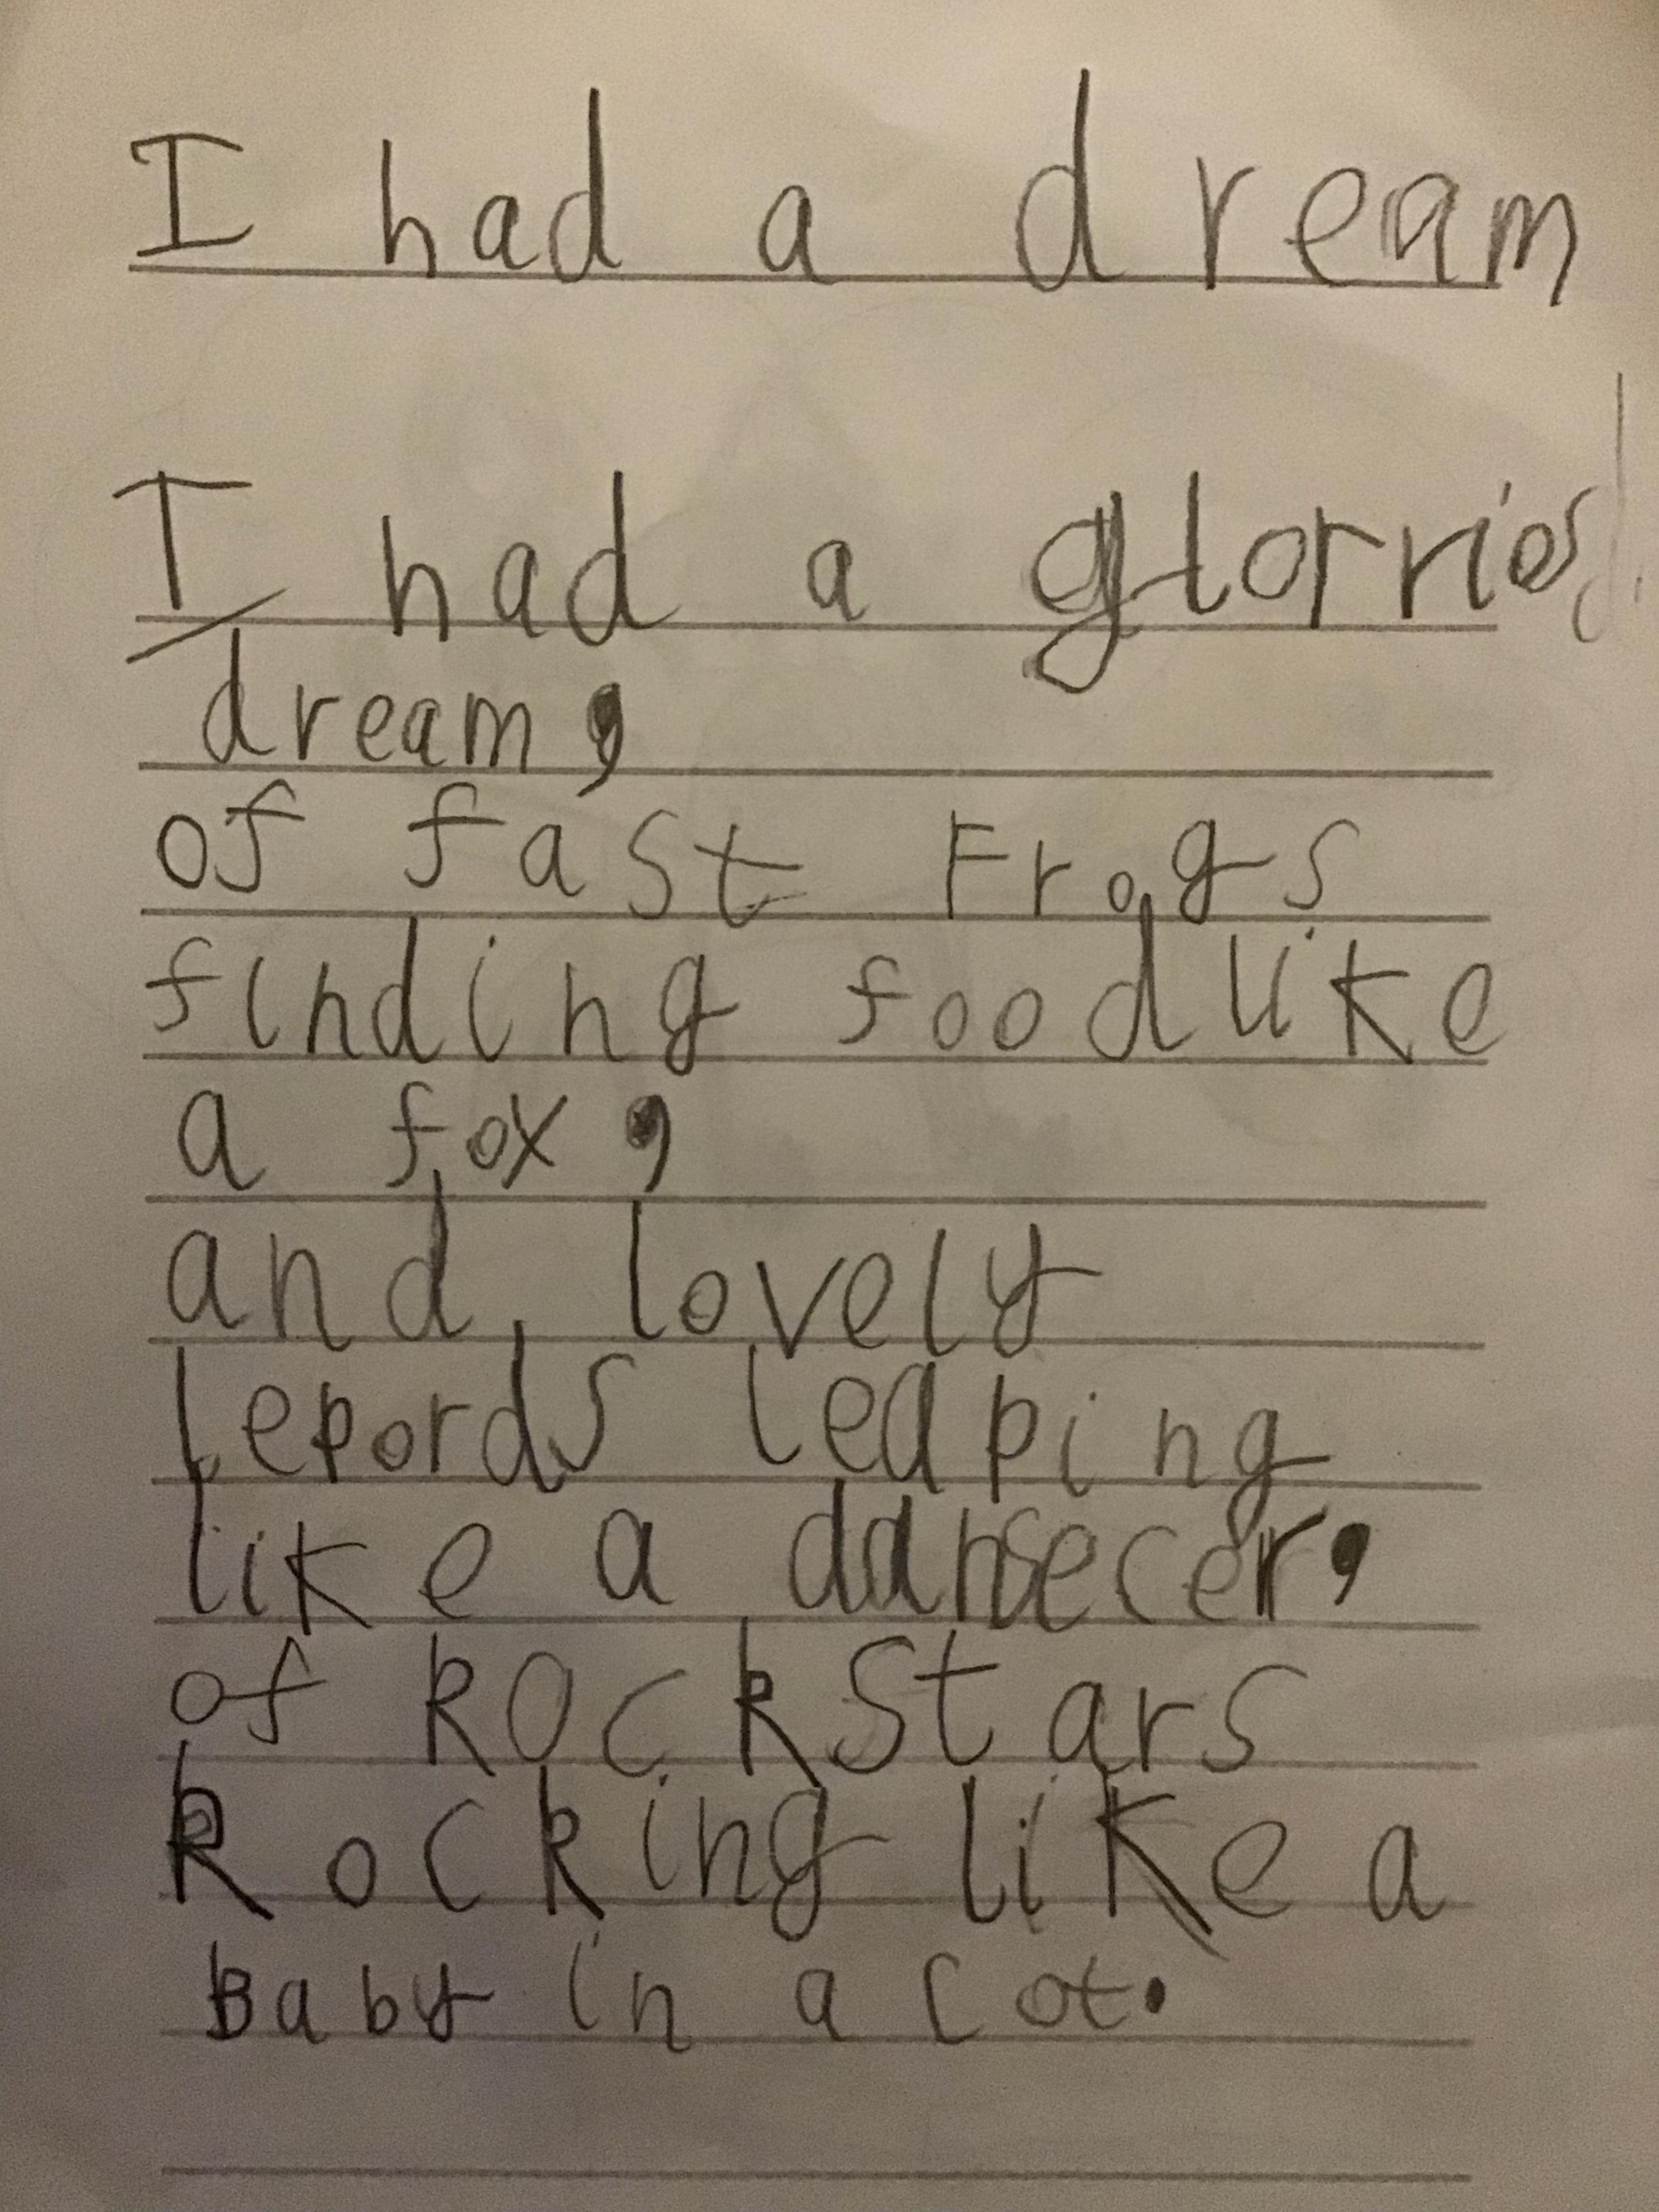 I had a dream
I had a glorrios
dream,
of fast Frogs
finding food like
a fox,
and lovely
lepords leaping
like a dansecer,
of Rockstars
Rocking like a
Baby in a cot.